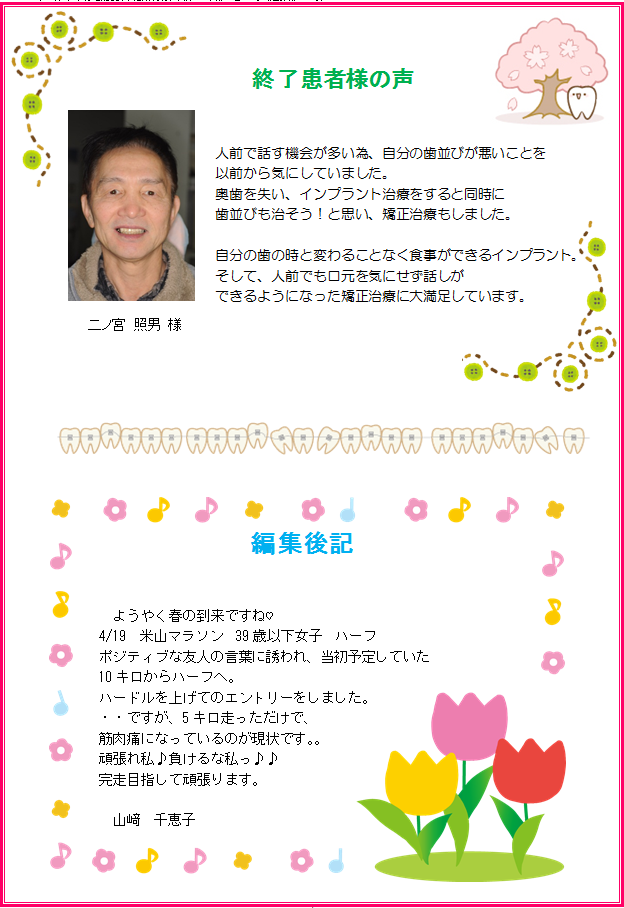 終了患者様の声
人前で話す機会が多い為、自分の歯並びが悪いことを
以前から気にしていました。
奥歯を失い、インプラント治療をすると同時に
歯並びも治そう！と思い、矯正治療もしました。
自分の歯の時と変わることなく食事ができるインプラント。
そして、人前でも口元を気にせず話しが
できるようになった矯正治療に大満足しています。
二ノ宮 照男 様
編集後記
ようやく春の到来ですね♡
4/19　米山マラソン　39歳以下女子　ハーフ
ポジティブな友人の言葉に誘われ、当初予定していた
10キロからハーフへ。
ハードルを上げてのエントリーをしました。
・・ですが、5キロ走っただけで、
筋肉痛になっているのが現状です。。
頑張れ私♪負けるな私っ♪♪
完走目指して頑張ります。
山﨑　千恵子